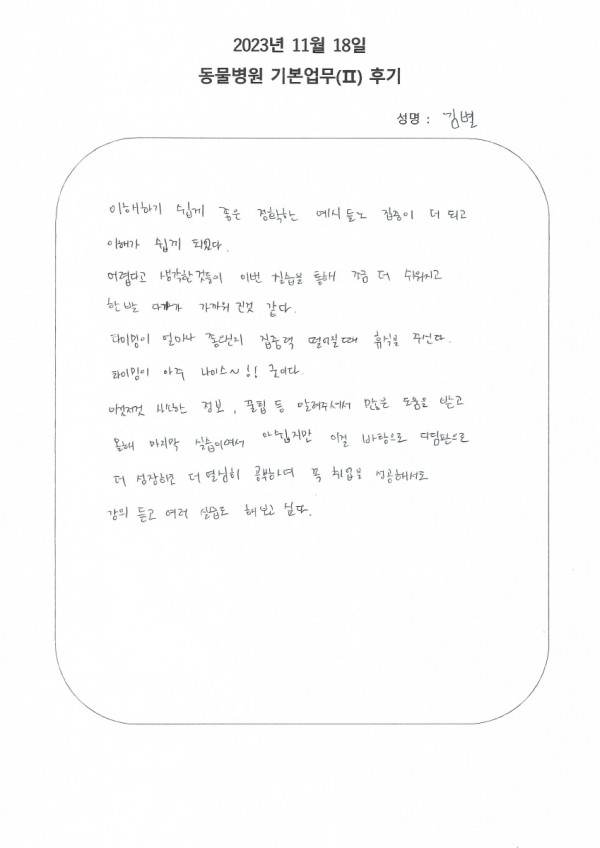 2023년 11월 18일
동물병원 기본업무(Ⅱ) 후기
성명 : 김별
이해하기 쉽게 좋은 정확한 예시들로 집중이 더 되고
이해가 쉽게 되었다.
어렵다고 생각한것들이 이번 실습을 통해 조금 더 쉬워지고
한발 다가가 가까워진것 같다.
타이밍이 얼마나 좋던지 집중력 떨어질때 휴식을 주신다.
타이밍이 아주 나이스~!! 굿이다.
이것저것 사소한 정보, 꿀팁 등 알려주셔서 많은 도움을 받고
올해 마지막 실습이여서 아쉽지만 이걸 바탕으로 디딤판으로
더 성장하고 더 열심히 공부하며 꼭 취업을 성공해서도
강의 듣고 여러 실습도 해보고 싶다.